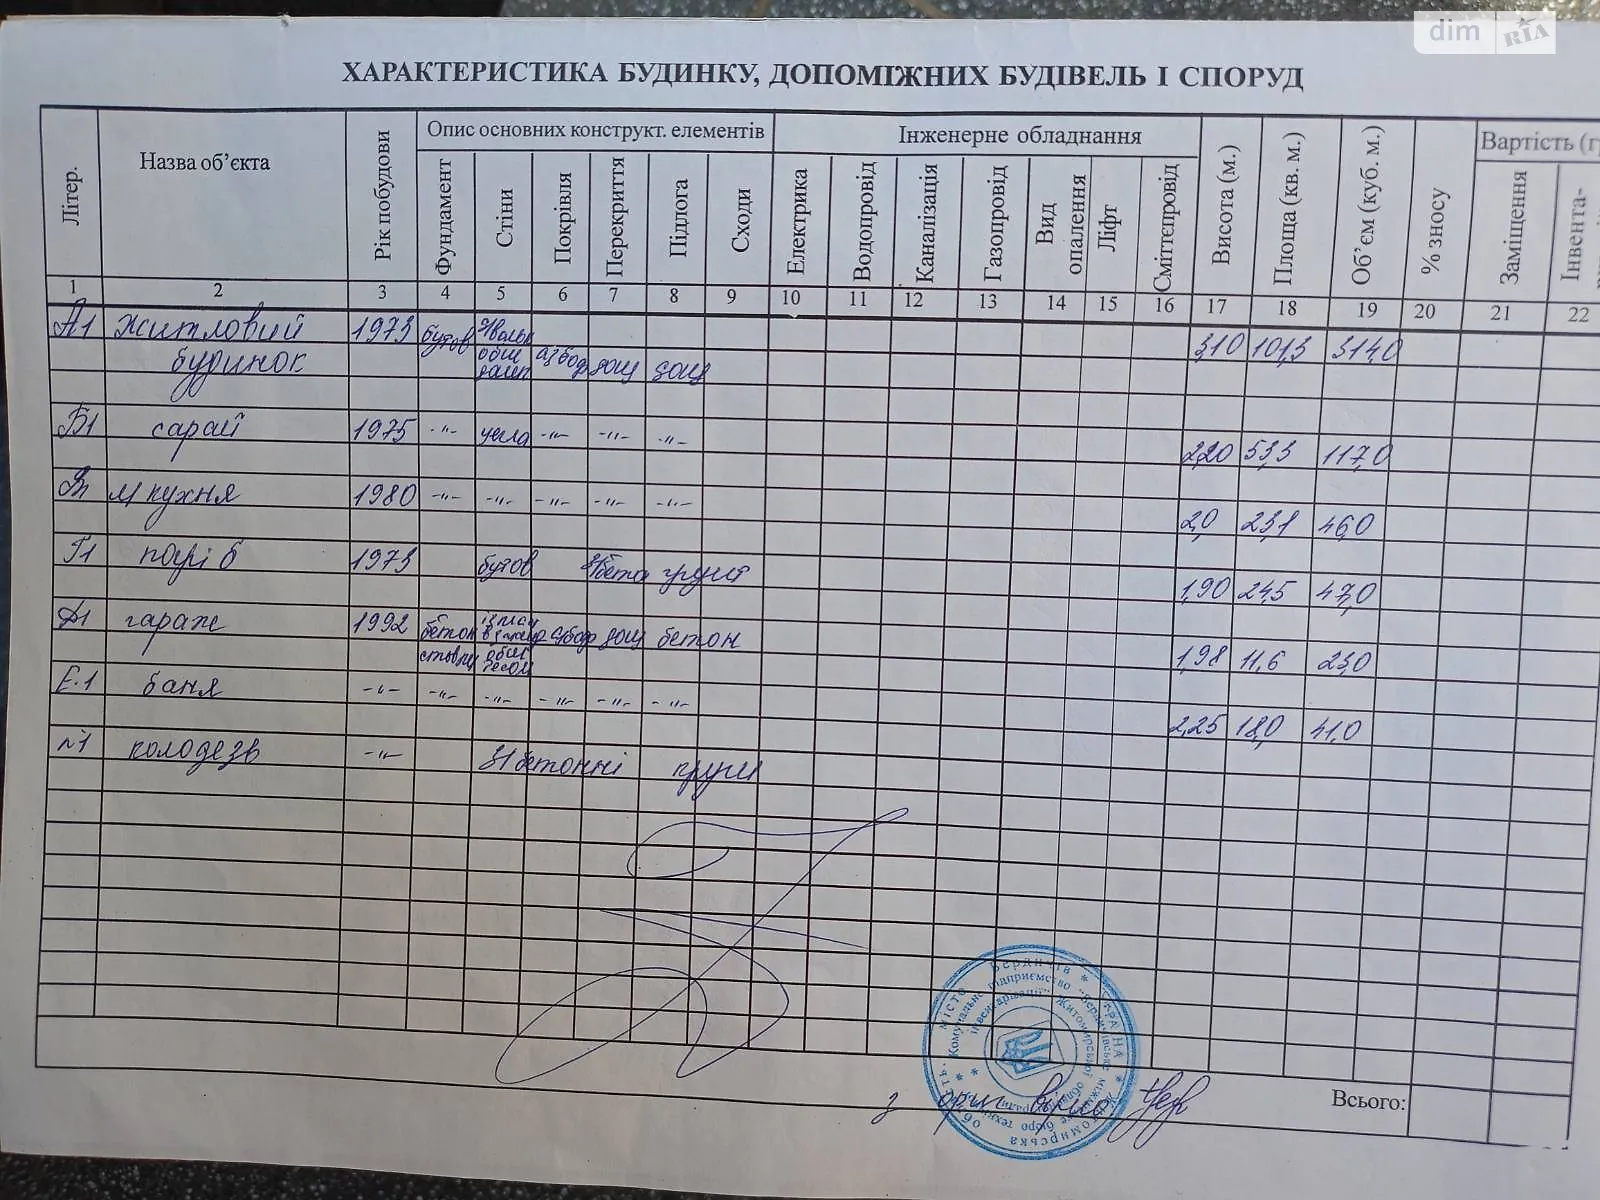 dim RIA
ХАРАКТЕРИСТИКА БУДИНКУ, ДОПОМІЖНИХ БУДІВЕЛЬ І СПОРУД
Літер. Назва об'єкта Рік побудови Опис основних конструкт. елементів Інженерне обладнання Висота (м.) Площа (кв. м.) Об'єм (куб. м.) % зносу Вартість (г
Фундамент Стіни Покрівля Перекриття Підлога Сходи Електрика Водопровід Каналізація Газопровід Вид опалення Ліфт Сміттєпровід Заміщення Інвента-
1 2 3 4 5 6 7 8 9 10 11 12 13 14 15 16 17 18 19 20 21 22
А1 житловий 1973 бутов
будинок азбод дощ дощ 3,10 101,3 314,0
Б1 сарай 1975 -"- цегла -"- -"- -"- 2,20 53,3 117,0
м кухня 1980 -"- -"- -"- -"- -"- 2,0 23,1 46,0
Г1 погріб 1973 бутов грунт 1,90 24,5 47,0
Д1 гараж 1992 бетон дощ бетон
стовпи 1,98 11,6 23,0
Е1 баня -"- -"- -"- -"- -"- -"- 2,25 18,0 41,0
колодезь -"- з/бетонні грунт
Україна * Житомирська область * місто Бердичів *
Комунальне підприємство "Бердичівське міжміське бюро технічної інвентаризації" Житомирської обласної ради
з ориг вірно
Всього: